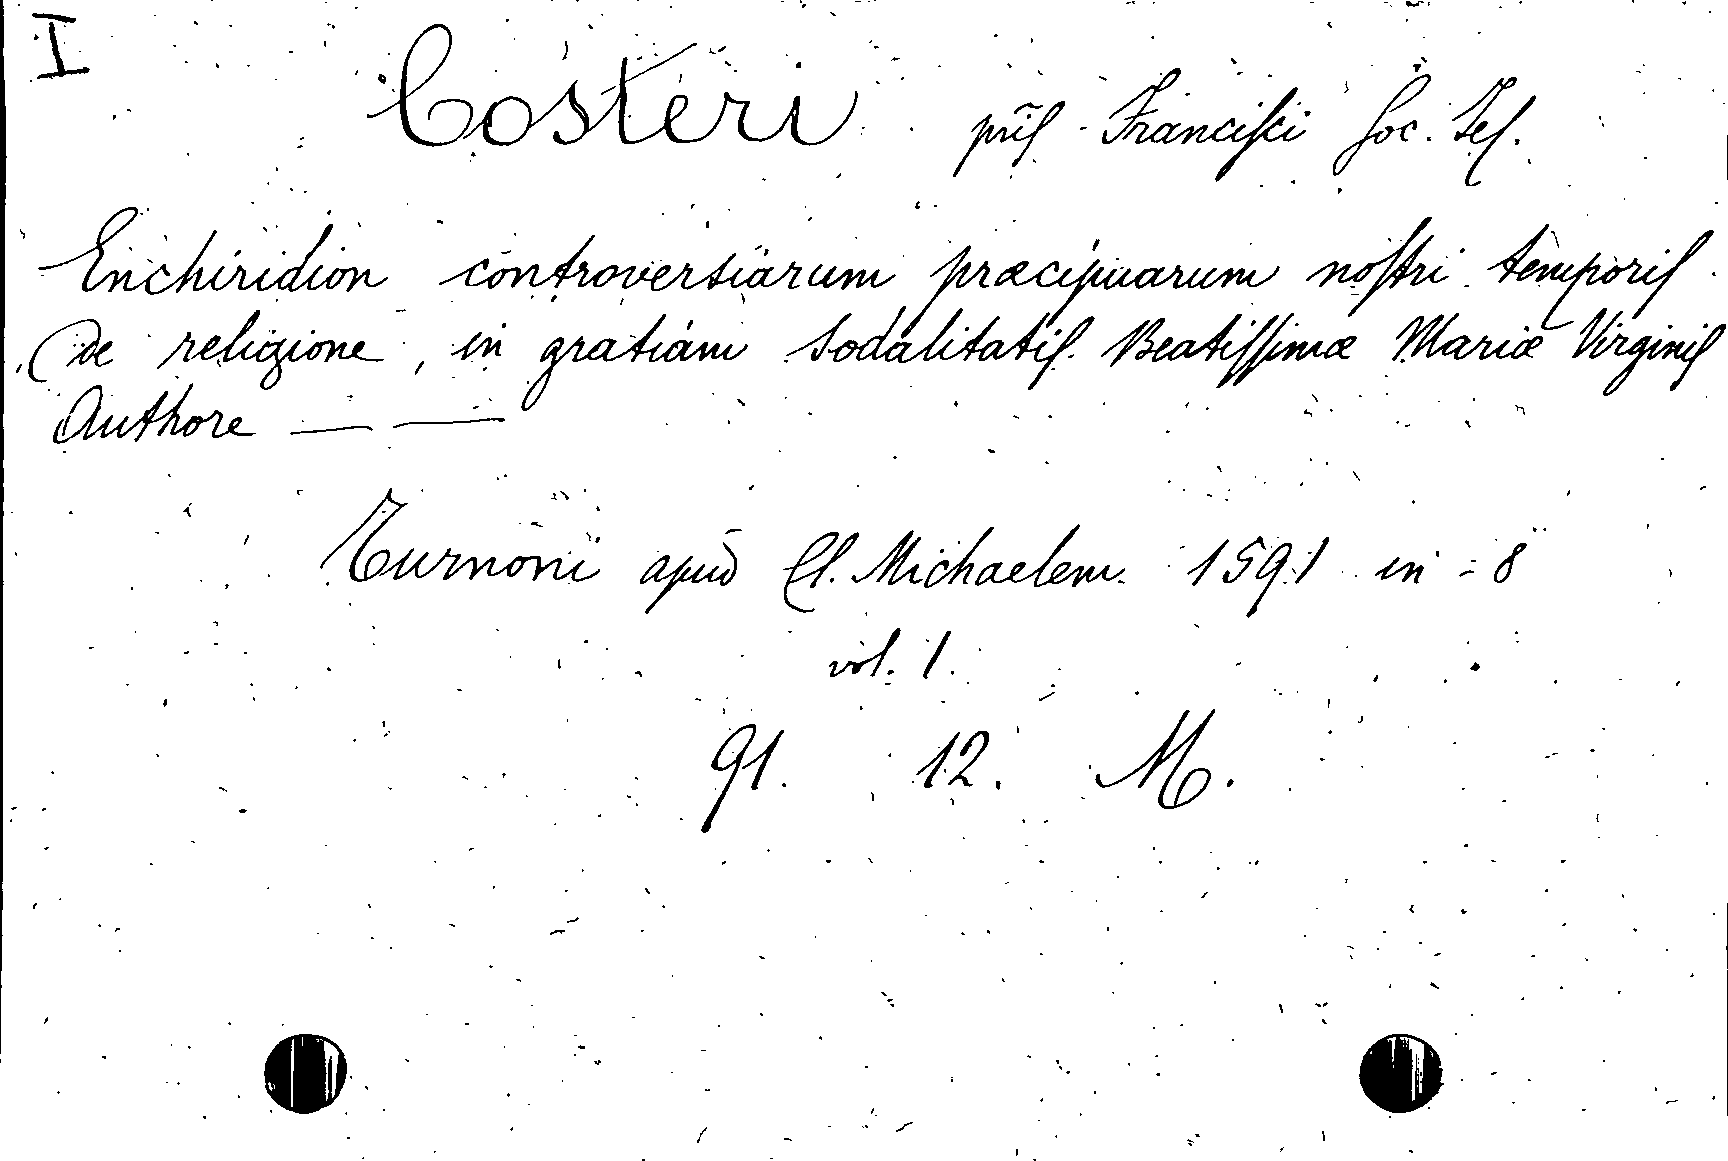 I
Costeri pris Francisci Soc. Jes.
Enchiridion controversiarum præcipuarum nostri temporis
de religione, in gratiam sodalitatis Beatissimæ Mariæ Virginis
Authore — —
Turnoni apud Cl. Michaelem 1591 in-8
vol. 1.
91. 12. M.